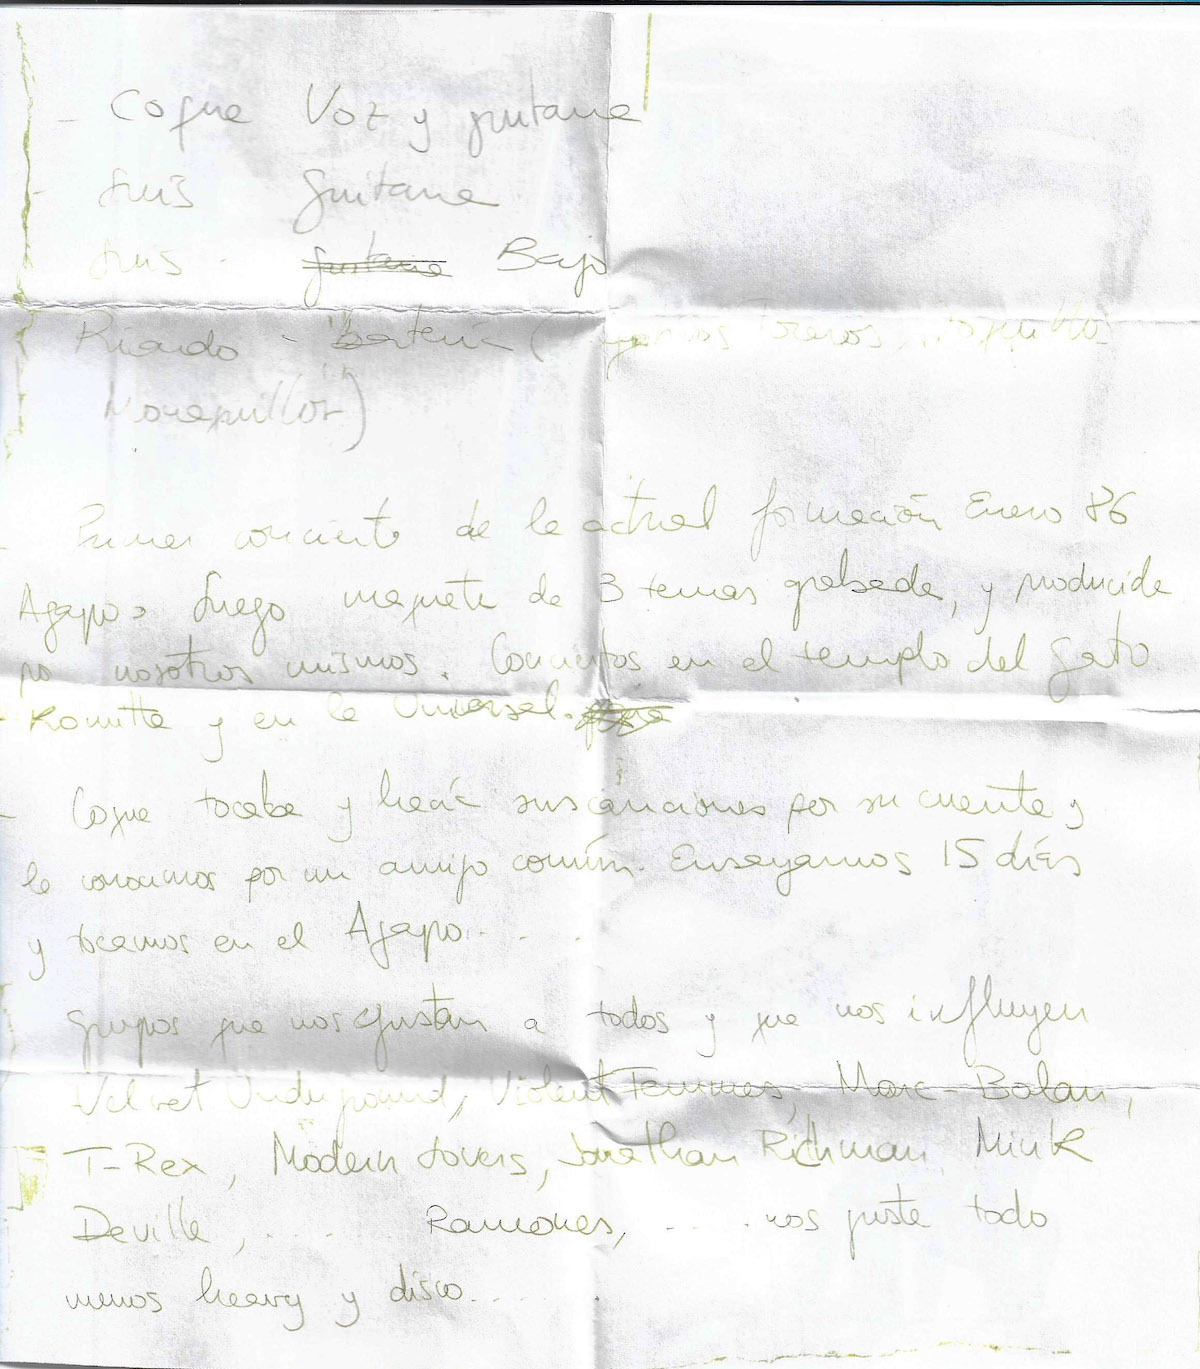 - Coque Voz y guitarra
- Luis guitarra
Luis - guitarra Bajo
Ricardo - batería (
Navapuillos)
- Primer concierto de la actual formación Enero 86
Agapo, luego maqueta de 3 temas grabada, y producida
po nosotros mismos. Conciertos en el templo del Gato
- Komitte y en la Universal.
- Coque tocaba y hacía sus canciones por su cuenta y
le conocimos por un amigo común. Ensayamos 15 días
y tocamos en el Agapo. . .
grupos que nos gustan a todos y que nos influyen
Velvet Underground, Violent Femmes, Marc-Bolan,
T-Rex, Modern Lovers, Jonathan Richman, Mink
Deville, .... Ramones, .... nos gusta todo
menos heavy y disco....